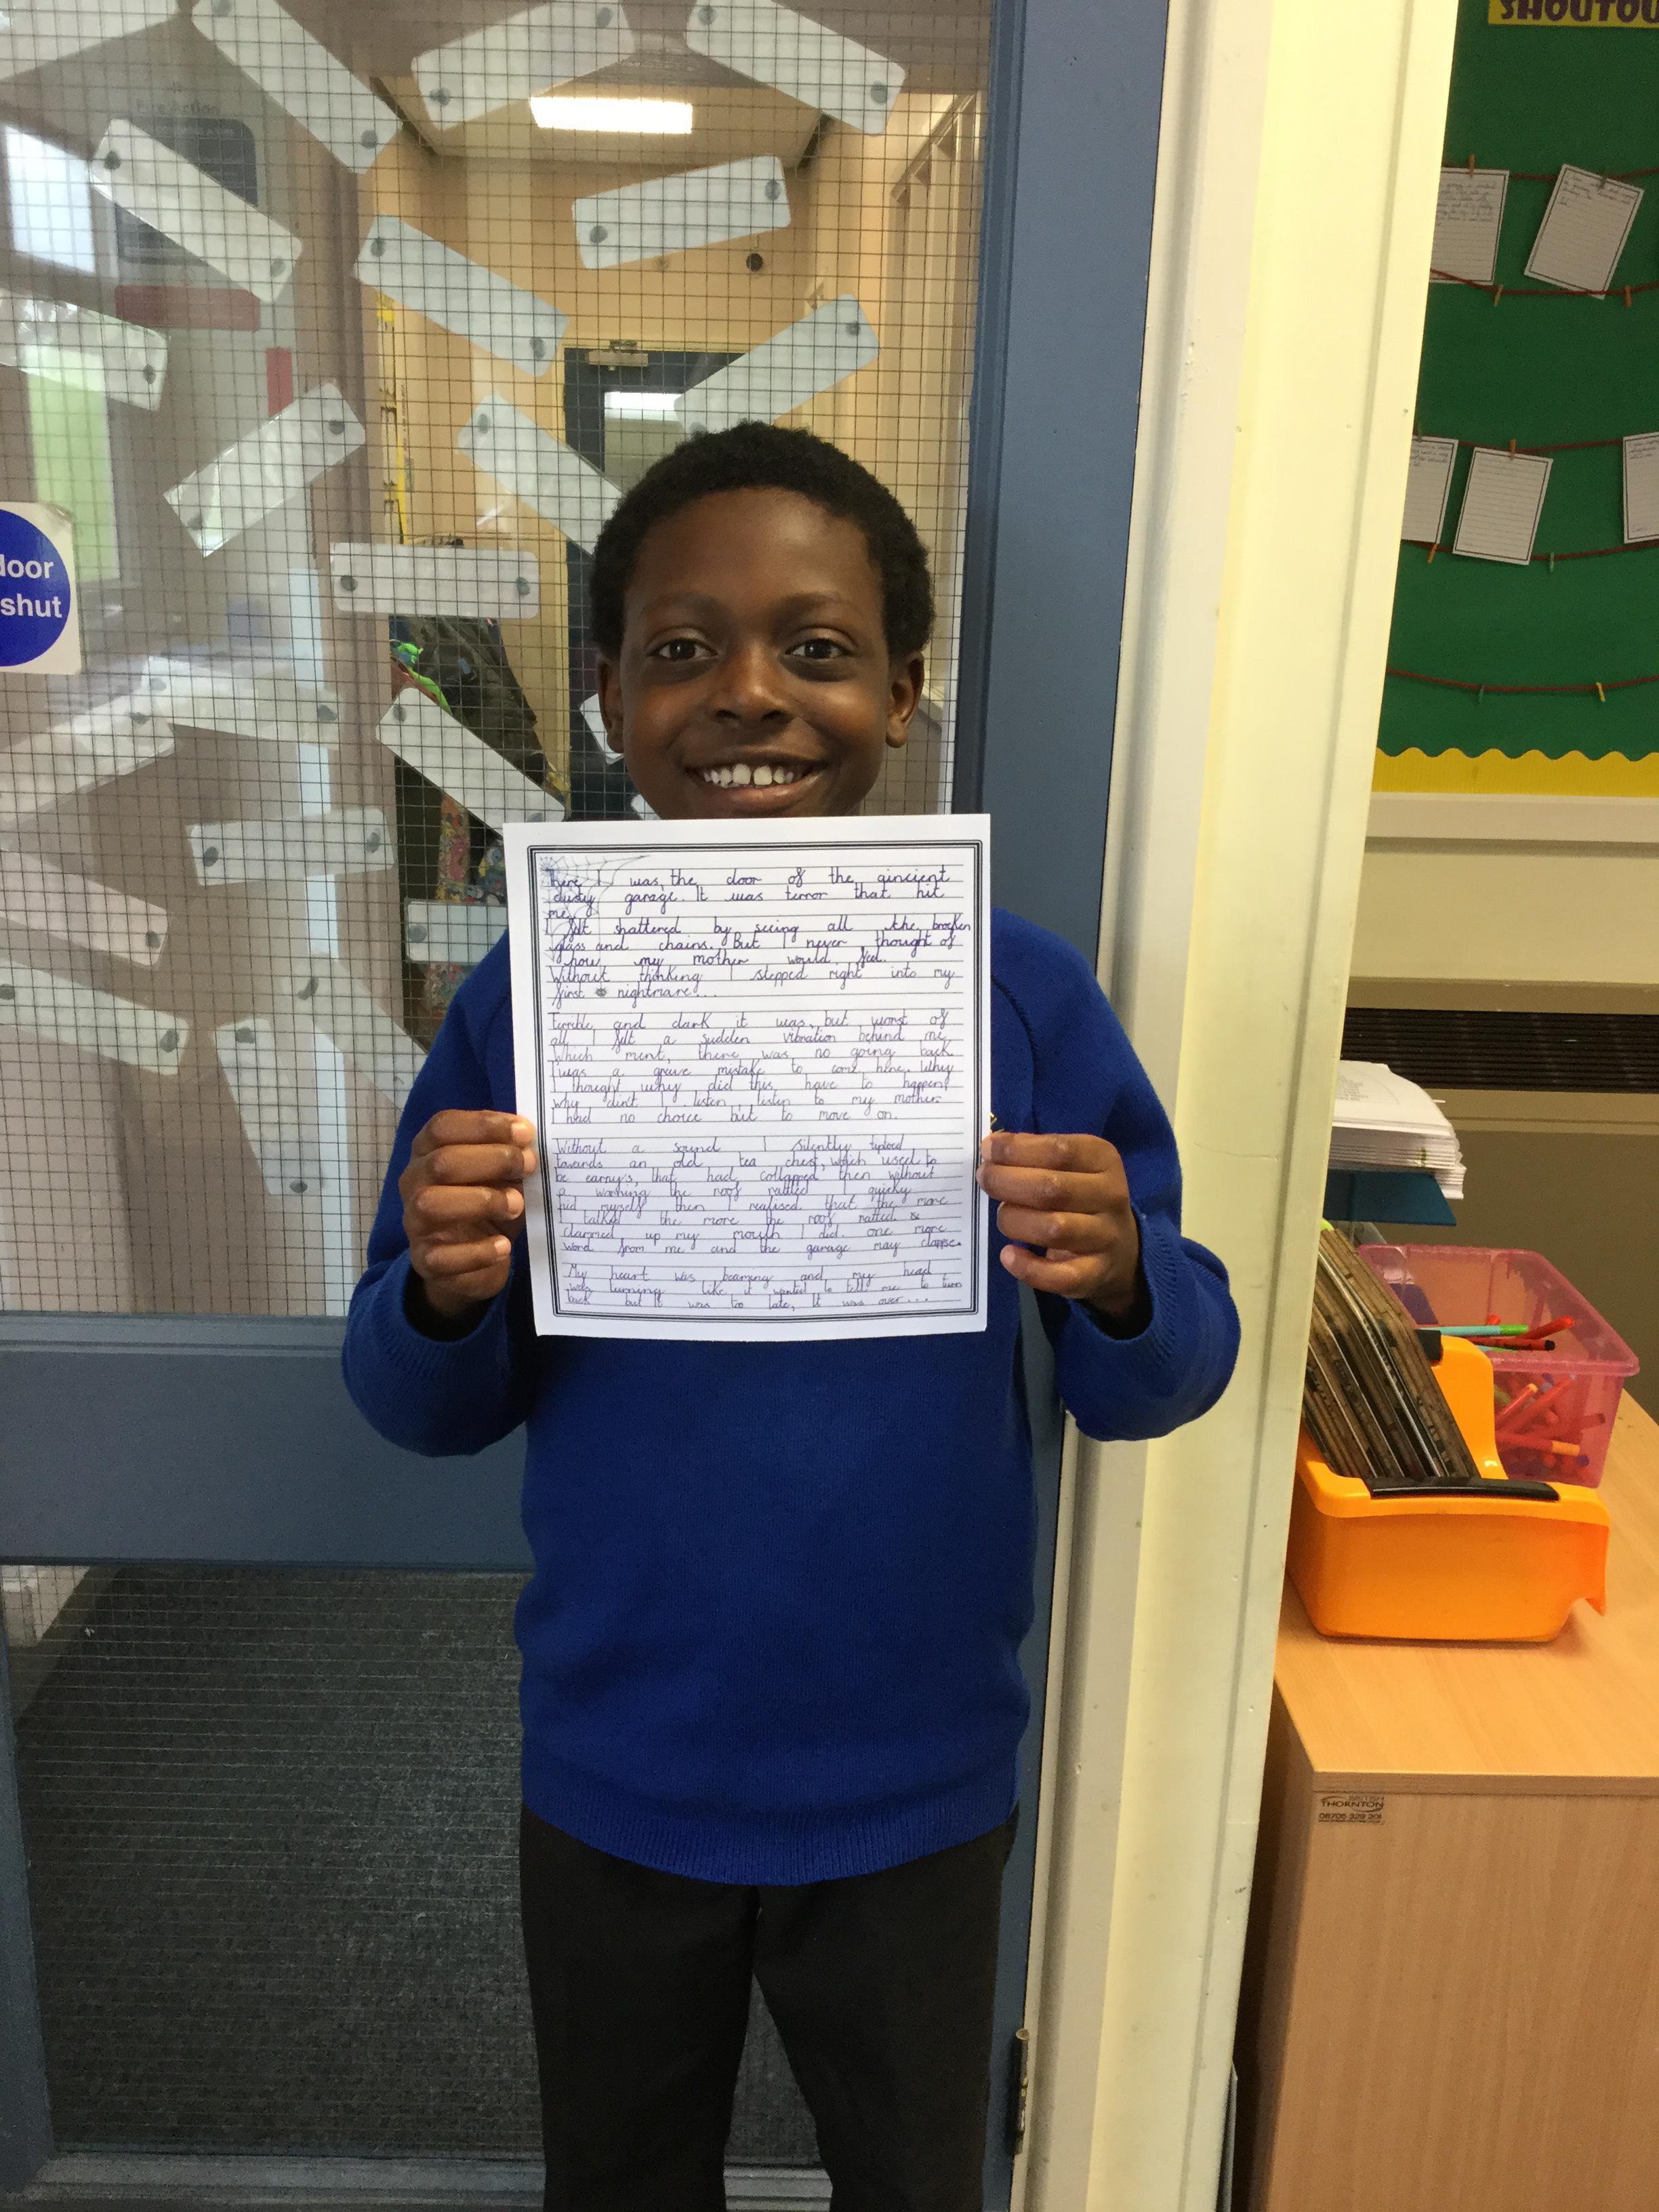 SHOUTOU
Fire Action
door
shut
There I was, the door of the aincient
dusty garage. It was terror that hit
me.
I felt shattered by seeing all the brocken
glass and chains. But I never thought of
how my mother would feel.
Without thinking I stepped right into my
first nightmare...
Terrible and dark it was, but worst of
all I felt a sudden vibration behind me,
which ment, there was no going back.
I was a grave mistake to come here. Why
I thought why did this have to happen,
why did't I listen, listen to my mother.
I had no choice but to move on.
Without a sound I silently tiptoed
towards an old tea chest, which used to
be earny's, that had collapped then without
a warning the roof rattled quickly
hid myself then I realised that the more
I talked the more the roof rattled &
clammed up my mouth I did. one more
word from me and the garage may clapse.
My heart was beaming and my head
was turning like it wanted to tell me to turn
back but it was too late, It was over...
BRITISH
THORNTON
08705 329 201